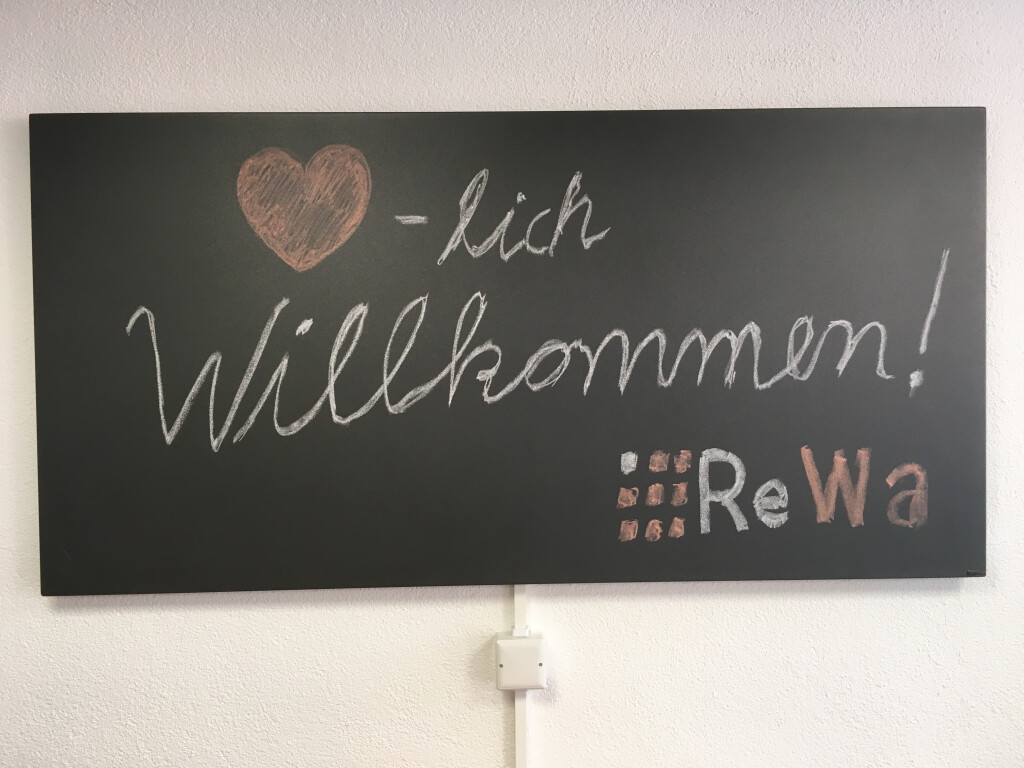 -lich
Willkommen!
ReWa